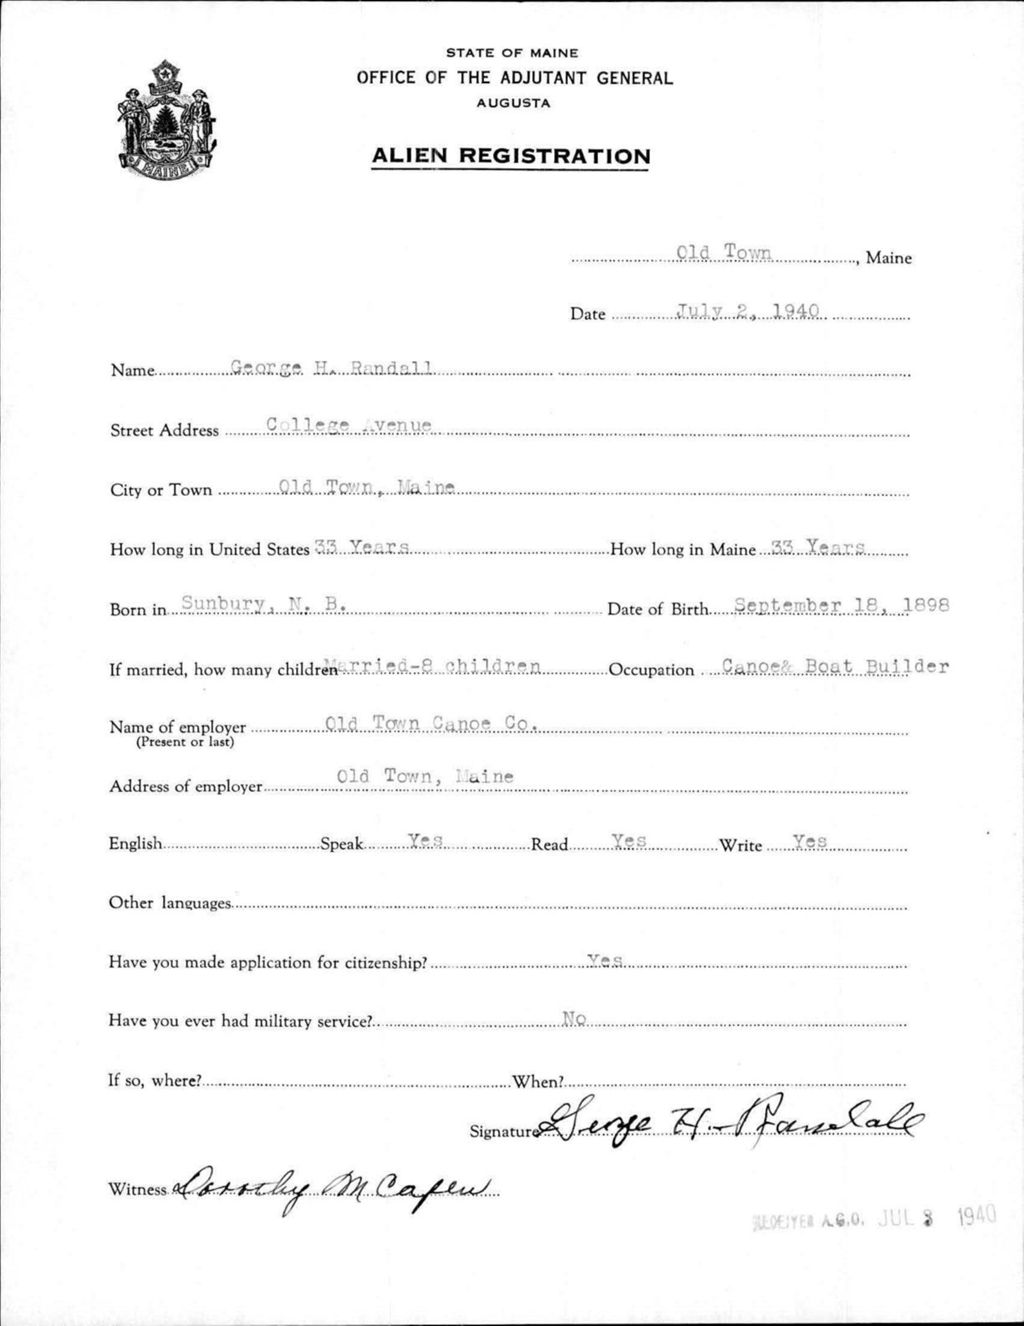 STATE OF MAINE
OFFICE OF THE ADJUTANT GENERAL
AUGUSTA
ALIEN REGISTRATION
MAINE
Old Town, Maine
Date July 2, 1940
Name George H. Randall
Street Address College Avenue
City or Town Old Town, Maine
How long in United States 33 Years How long in Maine 33 Years
Born in Sunbury, N. B. Date of Birth September 18, 1898
If married, how many children Married-8 children Occupation Canoe& Boat Builder
Name of employer Old Town Canoe Co.
(Present or last)
Address of employer Old Town, Maine
English Speak Yes Read Yes Write Yes
Other languages
Have you made application for citizenship? Yes
Have you ever had military service? No
If so, where? When?
Signature George H. Randall
Witness Dorothy M Capen
RECEIVED A.G.O. JUL 3 1940